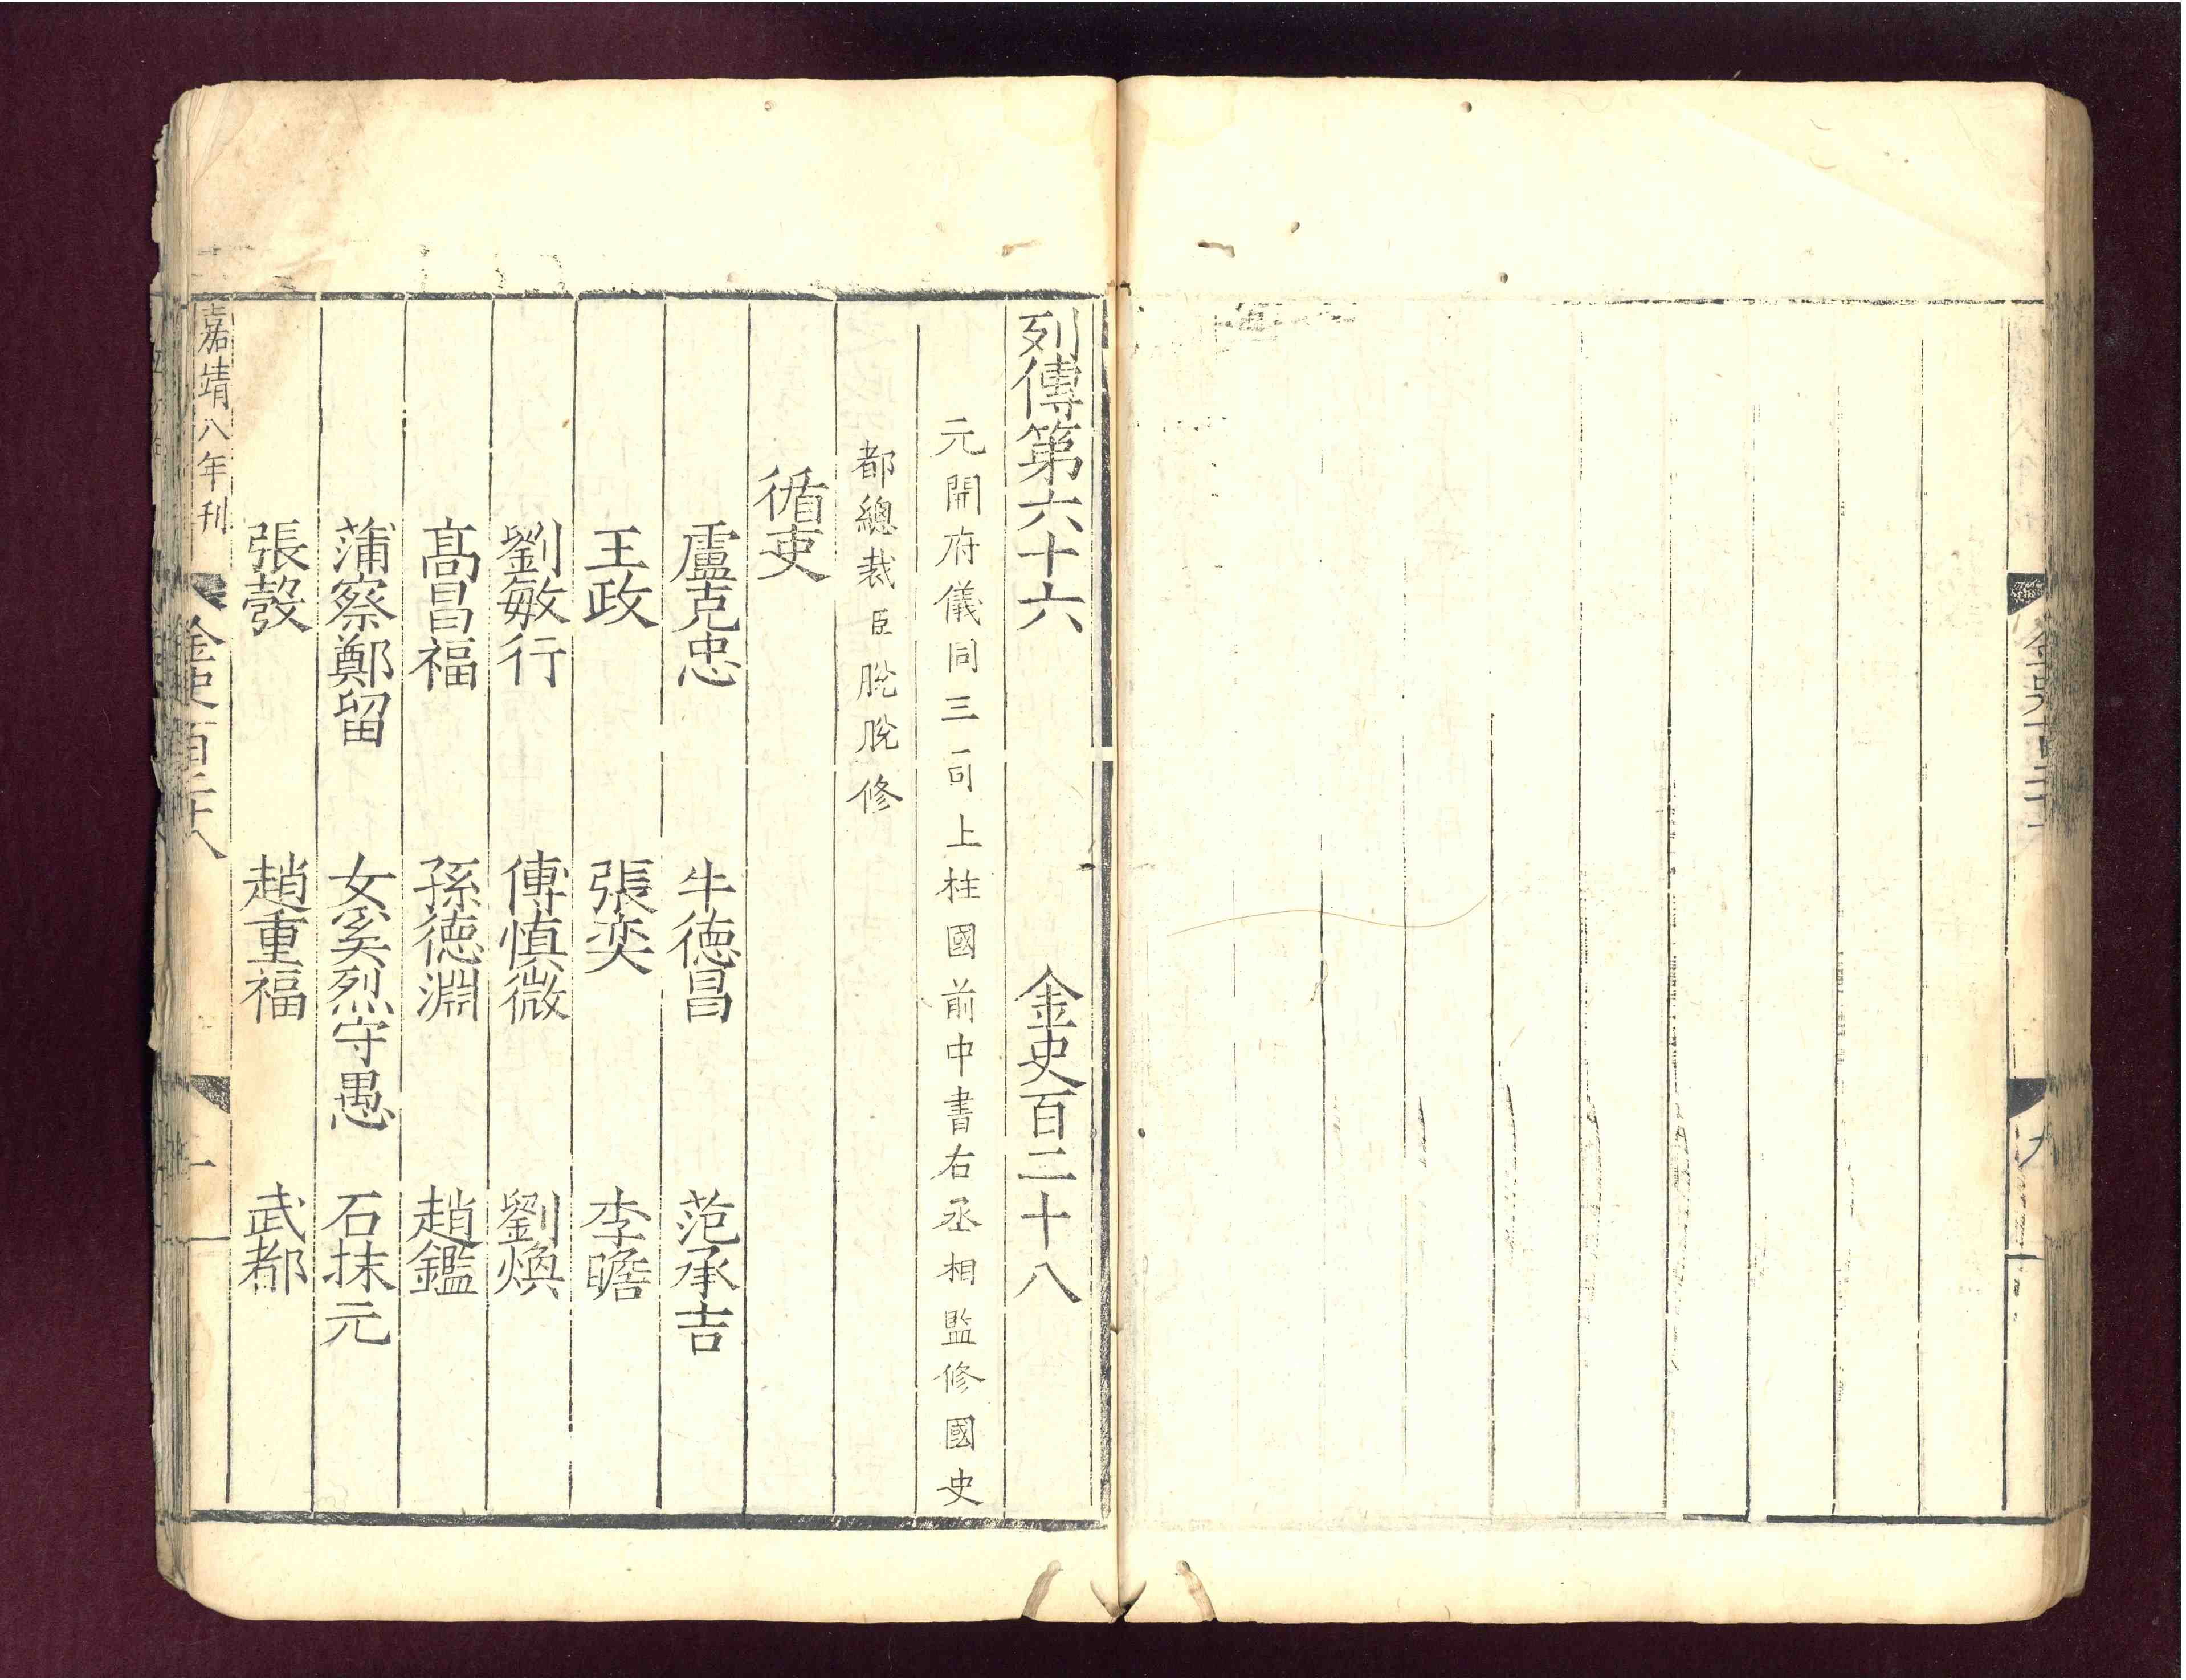 金史百二十
九
列傳第六十六 金史百二十八
元開府儀同三司上柱國前中書右丞相監修國史
都總裁臣脫脫修
循吏
盧克忠 牛德昌 范承吉
王政 張奕 李瞻
劉敏行 傅慎微 劉煥
高昌福 孫德淵 趙鑑
蒲察鄭留 女奚烈守愚 石抹元
張彀 趙重福 武都
嘉靖八年刊 金史百二十八 一